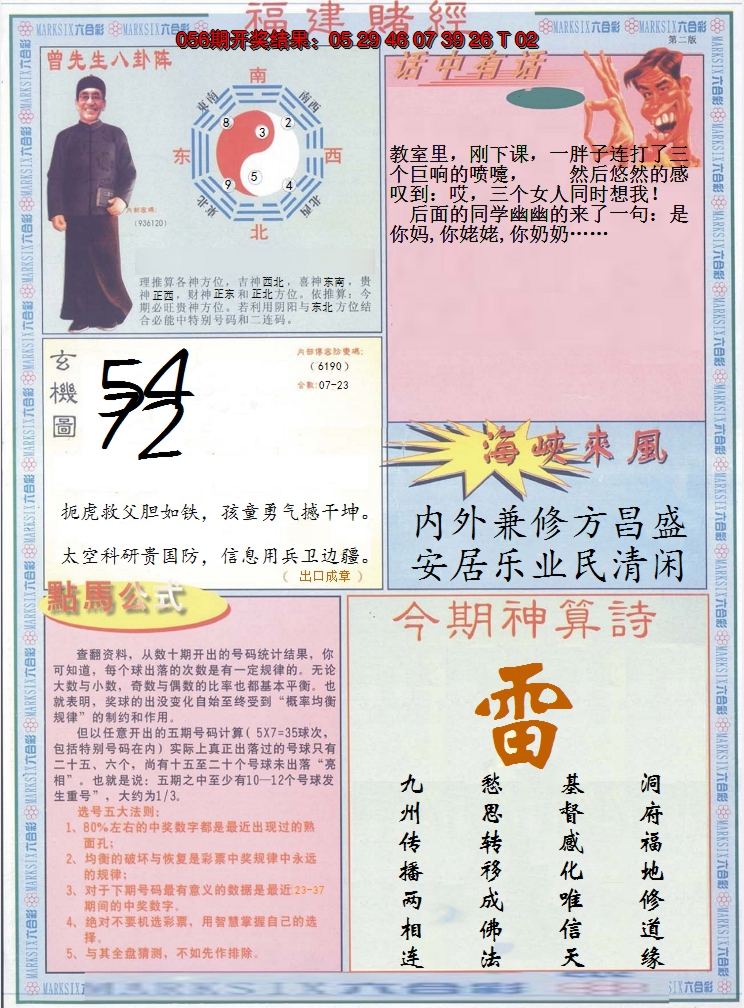 福建賭經
MARKSIX六合彩 MARKSIX六合彩 MARKSIX六合彩
056期开奖结果：05 29 46 07 39 26 T 02
第二版
曾先生八卦阵
南
东南
南西
东
西
東北
西北
北
8
3
2
9
5
4
内部密碼:
(936120)
理推算各神方位，吉神西北，喜神东南，贵
神正西，财神正东和正北方位。依推算：今
期必旺贵神方位。若利用阴阳与东北方位结
合必能中特别号码和二连码。
话中有话
教室里，刚下课，一胖子连打了三
个巨响的喷嚏， 然后悠然的感
叹到：哎，三个女人同时想我！
后面的同学幽幽的来了一句：是
你妈,你姥姥,你奶奶……
玄機圖
54
72
内部傳密防變碼:
(6190)
合數:07-23
扼虎救父胆如铁，孩童勇气撼干坤。
太空科研贵国防，信息用兵卫边疆。
（ 出口成章 ）
海峽來風
内外兼修方昌盛
安居乐业民清闲
點馬公式
查翻资料，从数十期开出的号码统计结果，你
可知道，每个球出落的次数是有一定规律的。无论
大数与小数，奇数与偶数的比率也都基本平衡。也
就表明，奖球的出没变化自始至终受到“概率均衡
规律”的制约和作用。
但以任意开出的五期号码计算( 5X7=35球次，
包括特别号码在内)实际上真正出落过的号球只有
二十五、六个，尚有十五至二十个号球未出落“亮
相”。也就是说：五期之中至少有10—12个号球发
生重号”，大约为1/3。
选号五大法则：
1、80%左右的中奖数字都是最近出现过的熟
面孔；
2、均衡的破坏与恢复是彩票中奖规律中永远
的规律；
3、对于下期号码最有意义的数据是最近23-37
期间的中奖数字。
4、绝对不要机选彩票，用智慧掌握自己的选
择。
5、与其全盘猜测，不如先作排除。
今期神算詩
雷
九州传播两相连
愁思转移成佛法
基督感化唯信天
洞府福地修道缘